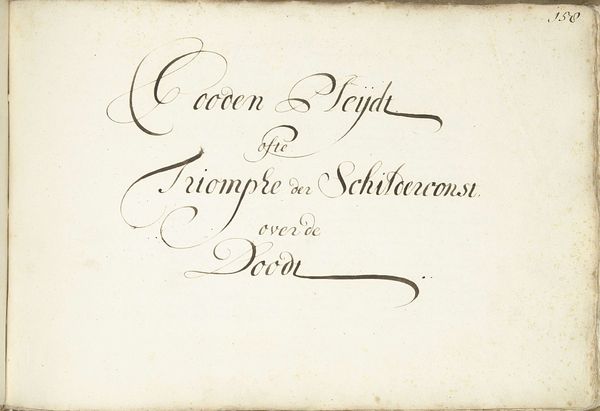 Gooden Pleijdt
ofte
Triomphe der Schilderconst.
over de
Doodt.
158